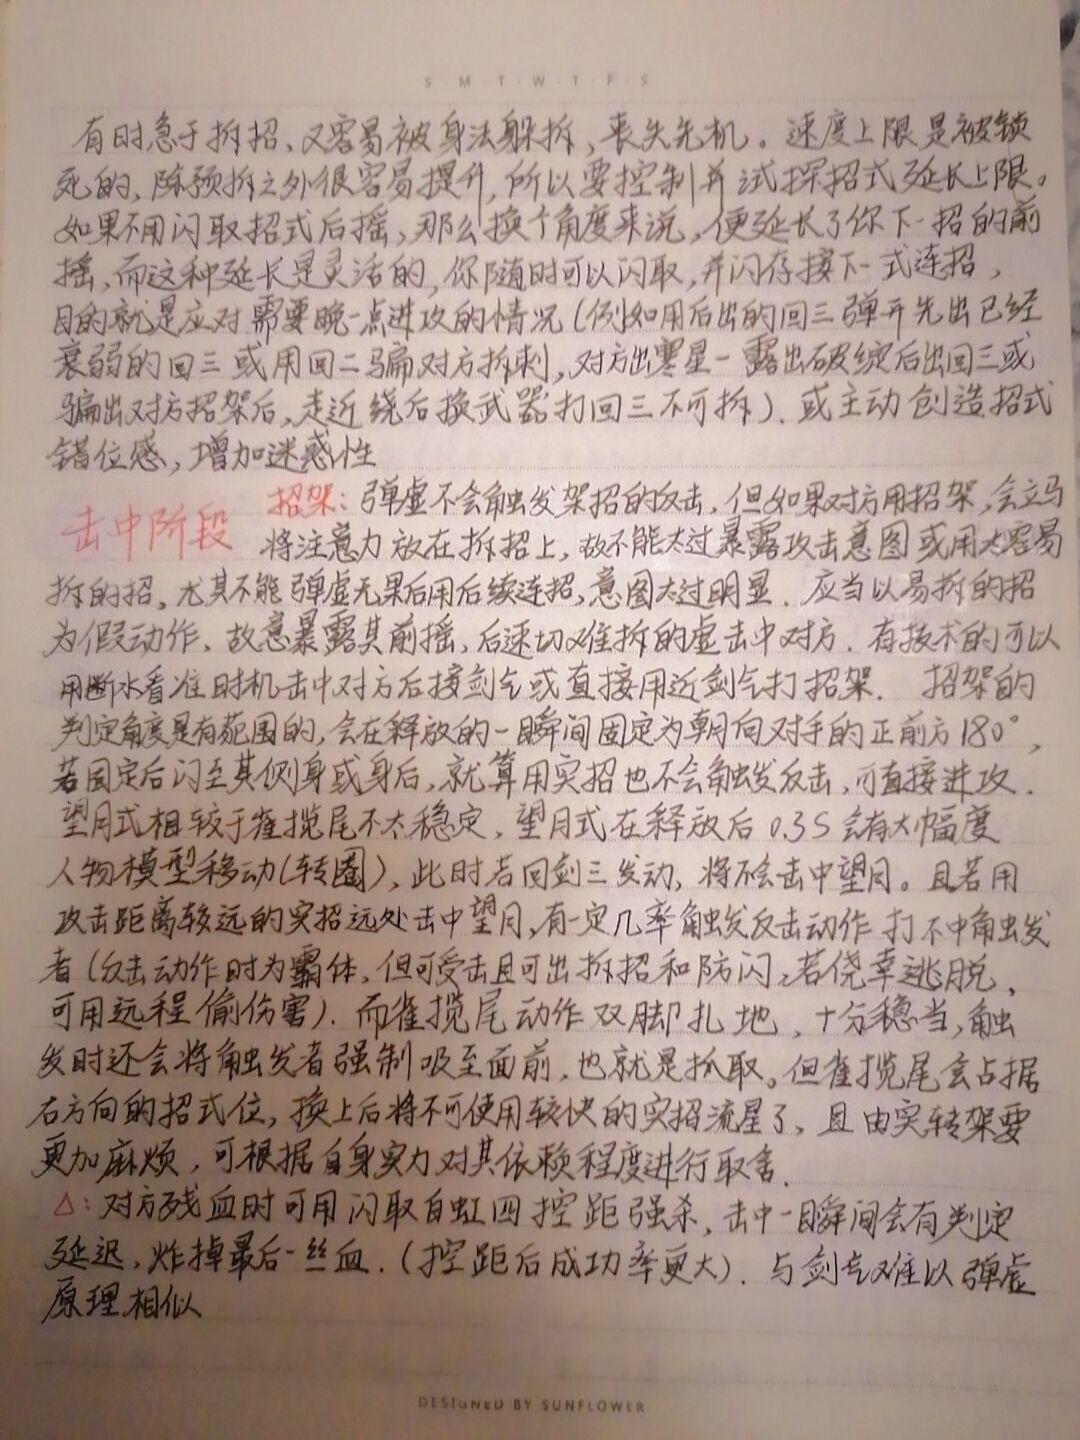 S · M · T · W · T · F · S
有时急于拆招,又容易被身法躲拆,丧失先机。速度上限是被锁
死的,除预拆之外很容易提升,所以要控制并试探招式延长上限。
如果不用闪取招式后摇,那么换个角度来说,便延长了你下一招的前
摇,而这种延长是灵活的,你随时可以闪取,并闪存接下一式连招,
目的就是应对需要晚一点进攻的情况(例如用后出的回三弹开先出已经
衰弱的回三或用回二骗对方拆刺,对方出寒星一露出破绽后出回三或
骗出对方招架后,走近绕后换武器打回三不可拆).或主动创造招式
错位感,增加迷惑性
击中阶段 招架:弹虚不会触发架招的反击,但如果对方用招架,会立马
将注意力放在拆招上,故不能太过暴露攻击意图或用太容易
拆的招,尤其不能弹虚无果后用后续连招,意图太过明显.应当以易拆的招
为假动作,故意暴露其前摇,后速切难拆的虚击中对方.有技术的可以
用断水看准时机击中对方后接剑气或直接用近剑气打招架.招架的
判定角度是有范围的,会在释放的一瞬间固定为朝向对手的正前方180°,
若固定后闪至其侧身或身后,就算用实招也不会触发反击,可直接进攻.
望月式相较于雀揽尾不太稳定,望月式在释放后0.3S会有大幅度
人物模型移动(转圈),此时若回剑三发动,将不会击中望月。且若用
攻击距离较远的实招远处击中望月,有一定几率触发反击动作打不中触发
者(反击动作时为霸体,但可受击且可出拆招和防闪,若侥幸逃脱,
可用远程偷伤害).而雀揽尾动作双脚扎地,十分稳当,触
发时还会将触发者强制吸至面前,也就是抓取。但雀揽尾会占据
右方向的招式位,换上后将不可使用较快的实招流星了,且由实转架要
更加麻烦,可根据自身实力对其依赖程度进行取舍.
△:对方残血时可用闪取白虹四控距强杀,击中一瞬间会有判定
延迟,炸掉最后一丝血.(控距后成功率更大).与剑气难以弹虚
原理相似
DESIGNED BY SUNFLOWER